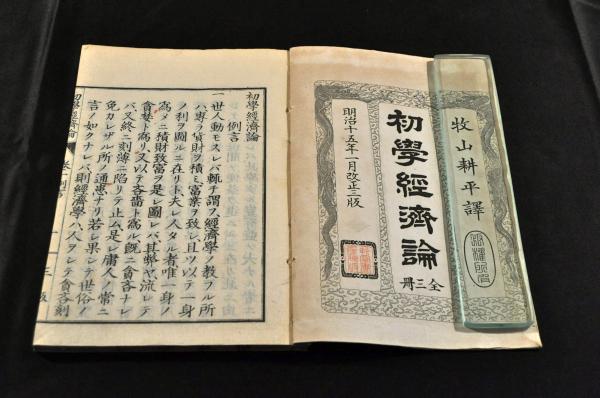 牧山耕平譯
初學經濟論
全三冊
明治十五年一月改正三版
初學經濟論
例言
一世人動モスレバ輒チ謂フ經濟學ノ教フル所
ハ專ラ貨財ヲ積ミ富業ヲ致シ且ツ以テ一身
ノ利ヲ圖ルニ在リト夫レ人タル者唯一身ノ
為メニ積財致富ヲ是レ圖レバ其弊ヤ流レテ
貪婪ト為リ又以テ吝嗇ト為ル既ニ貪吝ナレ
バ又終ニ刻薄ニ陷リテ止ム是レ庸人ノ常ニ
免カレザル所ノ通患ナリ若シ果シテ世俗ノ
言ノ如クナレバ則經濟學ハ人ヲシテ貪吝刻
初學經濟論
三版